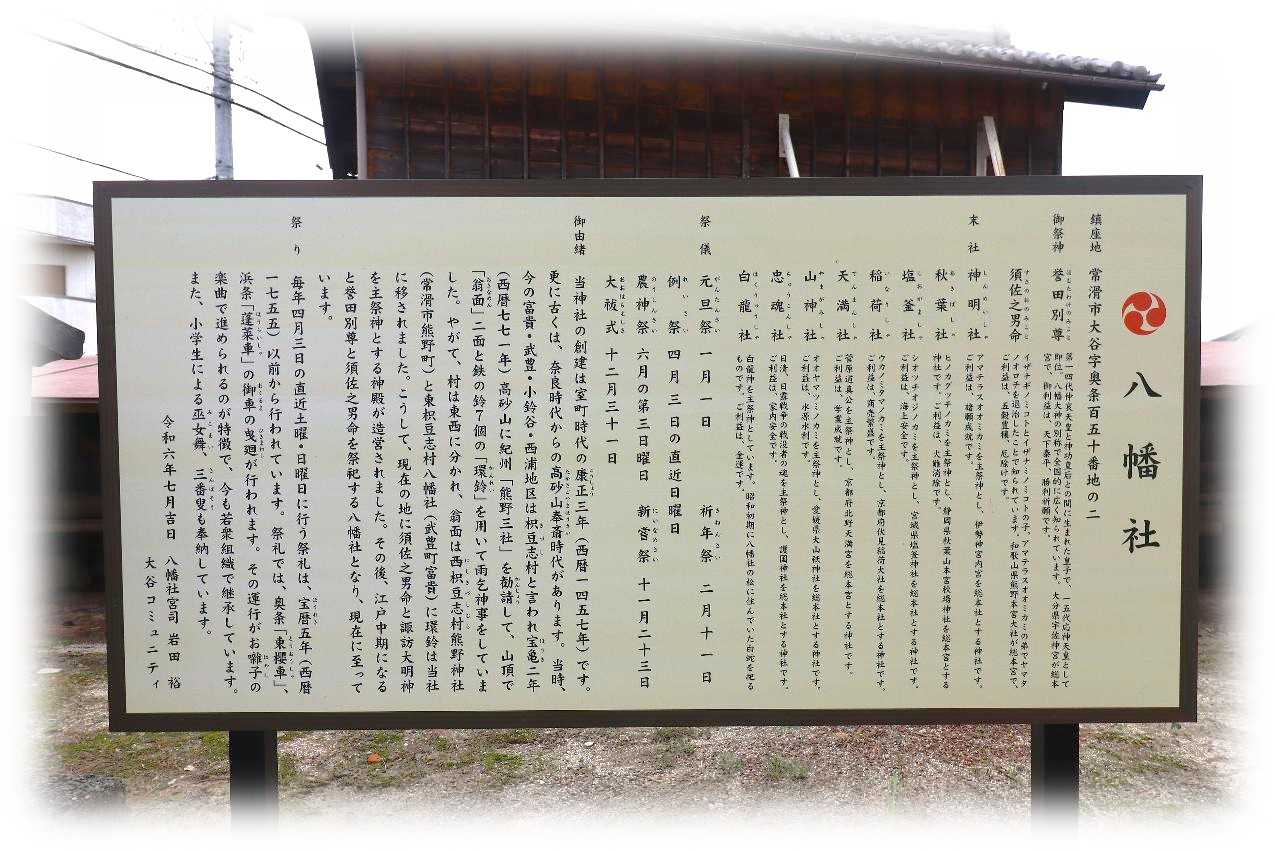 八幡社
鎮座地 常滑市大谷字奥条百五十番地の二
御祭神 誉田別尊 第一四代仲哀天皇と神功皇后との間に生まれた皇子で、一五代応神天皇として
即位。八幡大神の別称で全国的に広く知られています。大分県宇佐神宮が総本
宮で、御利益は、天下泰平、勝利祈願です。
須佐之男命 イザナギノミコトとイザナノミコトの子、アマテラスオオミカミの弟でヤマタ
ノオロチを退治したことで知られています。和歌山県熊野本宮大社が総本宮で、
ご利益は、五穀豊穣、厄除けです。
末社 神明社 アマテラスオオミカミを主祭神とし、伊勢神宮内宮を総本社とする神社です。
ご利益は、諸願成就です。
秋葉社 ヒノカグツチノカミを主祭神とし、静岡県秋葉山本宮秋葉神社を総本宮とする
神社です。ご利益は、火難消除です。
塩釜社 シオツチオジノカミを主祭神とし、宮城県塩釜神社を総本社とする神社です。
ご利益は、海上安全です。
稲荷社 ウカノミタマノカミを主祭神とし、京都府伏見稲荷大社を総本社とする神社です。
ご利益は、商売繁盛です。
天満社 菅原道真公を主祭神とし、京都府北野天満宮を総本宮とする神社です。
ご利益は、学業成就です。
山神社 オオヤマツミノカミを主祭神とし、愛媛県大山祇神社を総本社とする神社です。
ご利益は、水源水利です。
忠魂社 日清、日露戦争の戦没者の魂を主祭神とし、護国神社を総本社とする神社です。
ご利益は、家内安全です。
白龍社 白龍神を主祭神としています。昭和初期に八幡社の松に住んでいた白蛇を祀る
ものです。ご利益は、金運です。
祭儀 元旦祭 一月一日 祈年祭 二月十一日
例祭 四月三日の直近日曜日
農神祭 六月の第三日曜日 新嘗祭 十一月二十三日
大祓式 十二月三十一日
御由緒 当神社の創建は室町時代の康正三年（西暦一四五七年）です。
更に古くは、奈良時代からの高砂山奉斎時代があります。当時、
今の富貴・武豊・小鈴谷・西浦地区は枳豆志村と言われ宝亀二年
（西暦七七一年）高砂山に紀州「熊野三社」を勧請して、山頂で
「翁面」二面と鉄の鈴７個の「環鈴」を用いて雨乞神事をしていま
した。やがて、村は東西に分かれ、翁面は西枳豆志村熊野神社
（常滑市熊野町）と東枳豆志村八幡社（武豊町富貴）に環鈴は当社
に移されました。こうして、現在の地に須佐之男命と諏訪大明神
を主祭神とする神殿が造営されました。その後、江戸中期になる
と誉田別尊と須佐之男命を祭祀する八幡社となり、現在に至って
います。
祭り 毎年四月三日の直近土曜・日曜日に行う祭礼は、宝暦五年（西暦
一七五五）以前から行われています。祭礼では、奥条「東櫻車」、
浜条「蓬莱車」の御車の曳廻が行われます。その運行がお囃子の
楽曲で進められるのが特徴で、今も若衆組織で継承しています。
また、小学生による巫女舞、三番叟も奉納しています。
令和六年七月吉日 八幡社宮司 岩田 裕
大谷コミュニティ